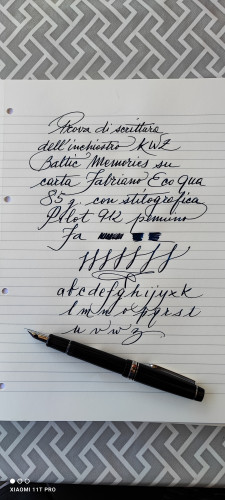 Prova di scrittura
dell'inchiostro KWZ
Baltic Memories su
carta Fabriano EcoQua
85 g. con stilografica
Pilot 912 pennino
Fa
abcdefghijyxk
lmnopqrst
uvwz
XIAOMI 11T PRO